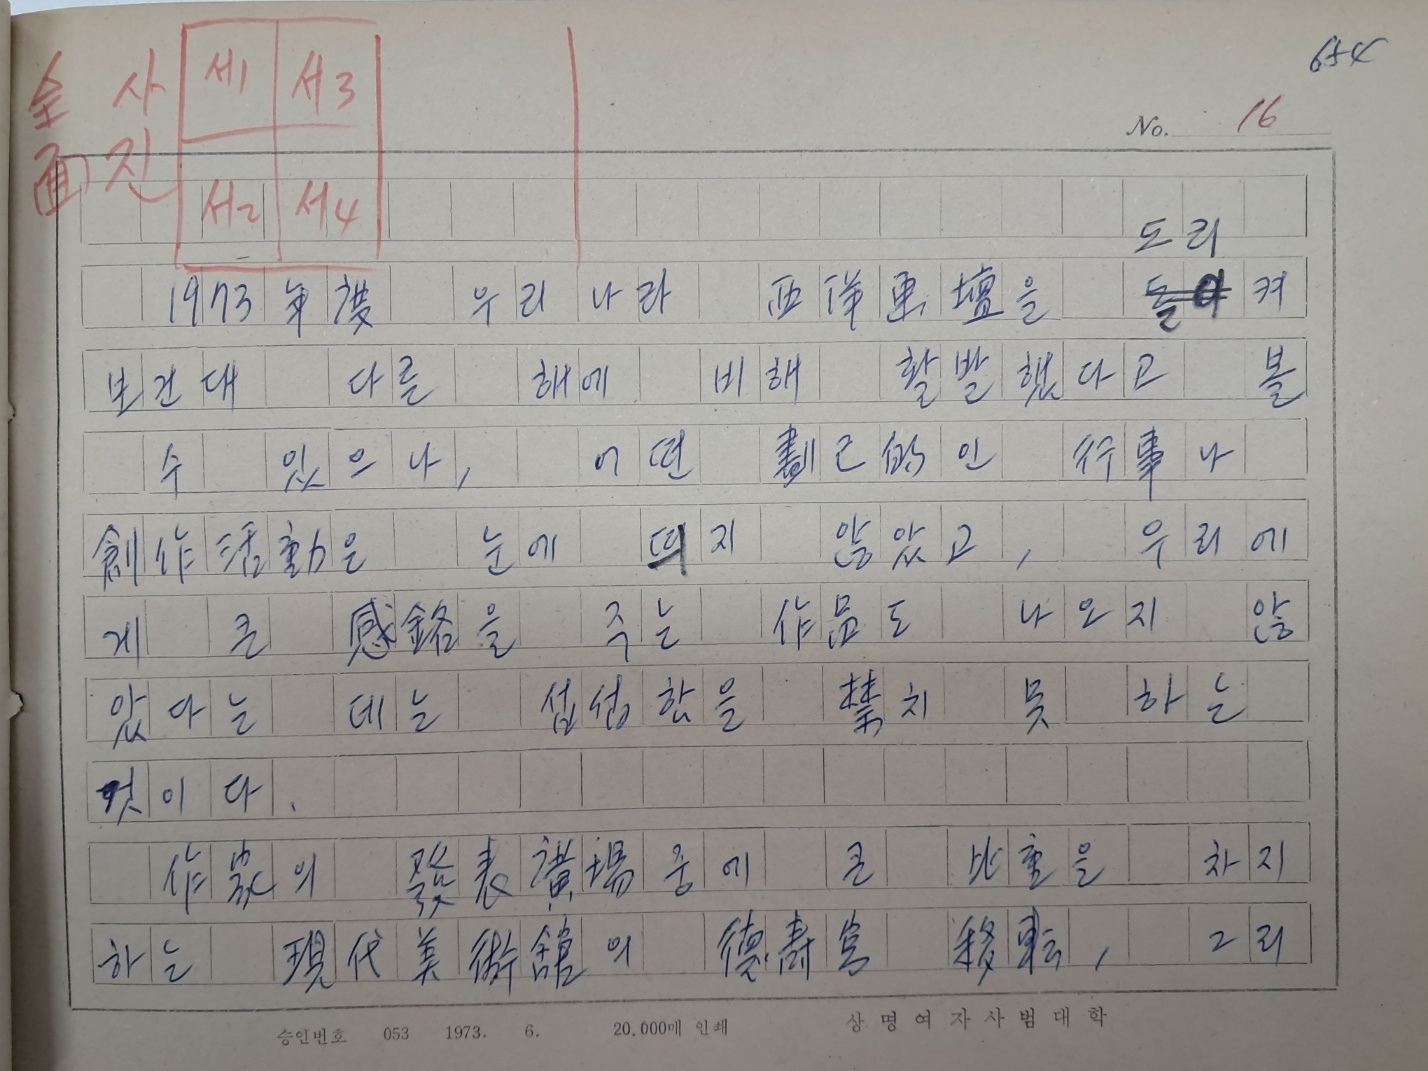 654
No. 16
全面 사진 서1 서3
서2 서4
도리
1973年度 우리 나라 西洋画壇을 돌이켜
보건대 다른 해에 비해 활발했다고 볼
수 있으나, 어떤 劃긔的인 行事나
創作活動은 눈에 띄지 않았고, 우리에
게 큰 感銘을 주는 作品도 나오지 않
았다는 데는 섭섭함을 禁치 못 하는
것이다.
作家의 發表廣場중에 큰 比重을 차지
하는 現代美術館의 德壽宮 移転, 그리
승인번호 053 1973. 6. 20.000매 인쇄 상명여자사범대학